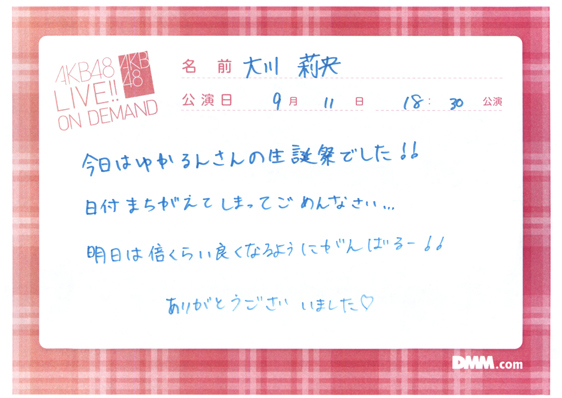 AKB48
LIVE!!
ON DEMAND
AKB
48
名前 大川 莉央
公演日 9月 11日 18:30 公演
今日はゆかるんさんの生誕祭でした!!
日付まちがえてしまってごめんなさい...
明日は倍くらい良くなるようにがんばるー!!
ありがとうございました♡
DMM.com